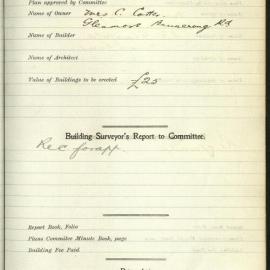 Plan approved by Committee
Name of Owner Mrs C. Cotter
Glenmore Bunnerong Rd
Name of Builder
Name of Architect
Value of Buildings to be erected £25
Building Surveyor's Report to Committee.
Rec for app
Report Book, Folio
Plans Committee Minute Book, page
Building Fee Paid